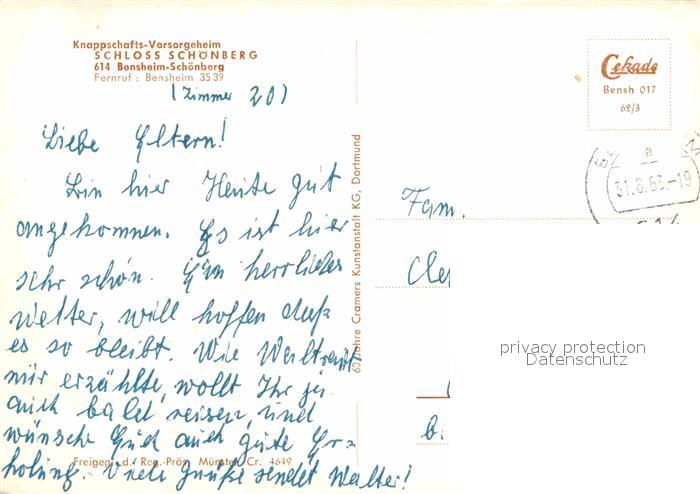 Knappschafts-Vorsorgeheim
SCHLOSS SCHÖNBERG
614 Bensheim-Schönberg
Fernruf: Bensheim 3539
(Zimmer 20)
Liebe Eltern!
Bin hier Heute gut
angekommen. Es ist hier
sehr schön. Ein herrliches
Wetter, will hoffen daß
es so bleibt. Wie Waltraut
mir erzählte, wollt Ihr ja
auch bald reisen, und
wünsche Euch auch gute Er-
holung. Viele Grüße sendet Walter!
Freigeg. d. Reg.-Präs. Münster Cr. 4649
60 Jahre Cramers Kunstanstalt KG, Dortmund
Cekade
Bensh 017
62/3
a
31.8.63.-19
Fam.
b.
privacy protection
Datenschutz